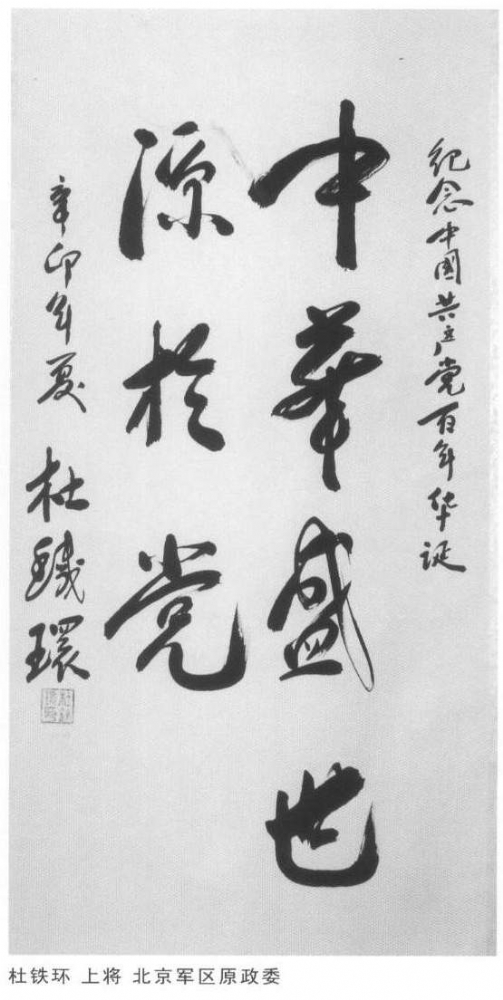 纪念中国共产党百年华诞
中華盛世
源於党
辛卯年夏
杜鐵環
杜铁环 上将 北京军区原政委